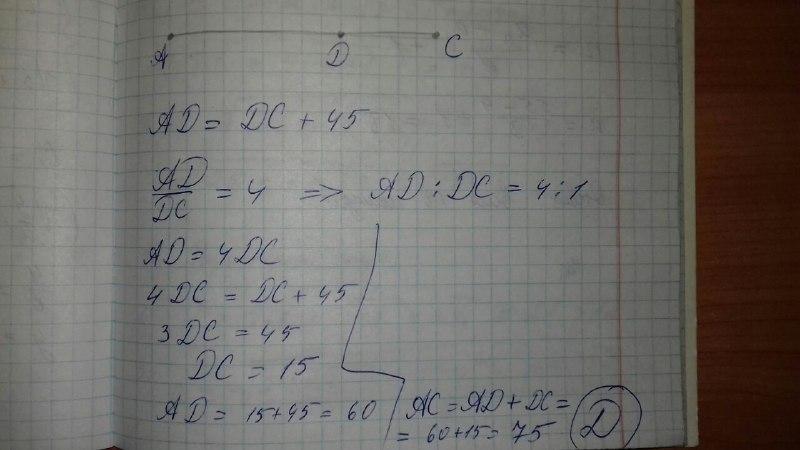 A D C
AD = DC + 45
AD/DC = 4 => AD : DC = 4 : 1
AD = 4DC
4DC = DC + 45
3DC = 45
DC = 15
AD = 15+45 = 60
AC = AD + DC =
= 60+15 = 75
D